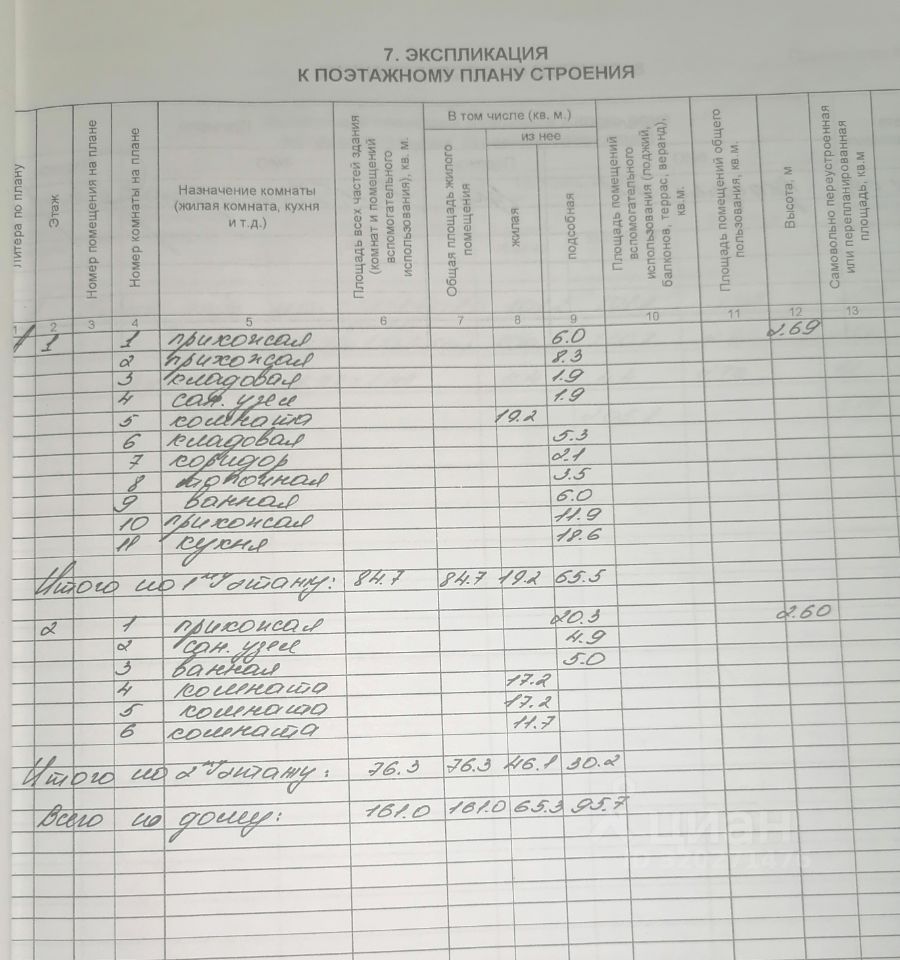 7. ЭКСПЛИКАЦИЯ
К ПОЭТАЖНОМУ ПЛАНУ СТРОЕНИЯ
Литера по плану
Этаж
Номер помещения на плане
Номер комнаты на плане
Назначение комнаты
(жилая комната, кухня
и т.д.)
Площадь всех частей здания
(комнат и помещений
вспомогательного
использования), кв. м.
В том числе (кв. м.)
Общая площадь жилого
помещения
из нее
жилая
подсобная
Площадь помещений
вспомогательного
использования (лоджий,
балконов, террас, веранд),
кв.м
Площадь помещений общего
пользования, кв.м.
Высота, м
Самовольно переустроенная
или перепланированная
площадь, кв.м
1 2 3 4 5 6 7 8 9 10 11 12 13
1 1 прихожая 6.0 2.69
2 прихожая 8.3
3 кладовая 1.9
4 сан. узел 1.9
5 комната 19.2
6 кладовая 5.3
7 коридор 2.1
8 топочная 3.5
9 ванная 6.0
10 прихожая 11.9
11 кухня 18.6
Итого по 1му этажу: 84.7 84.7 19.2 65.5
2 1 прихожая 20.3 2.60
2 сан. узел 4.9
3 ванная 5.0
4 комната 17.2
5 комната 17.2
6 комната 11.7
Итого по 2му этажу: 76.3 76.3 46.1 30.2
Всего по дому: 161.0 161.0 65.3 95.7